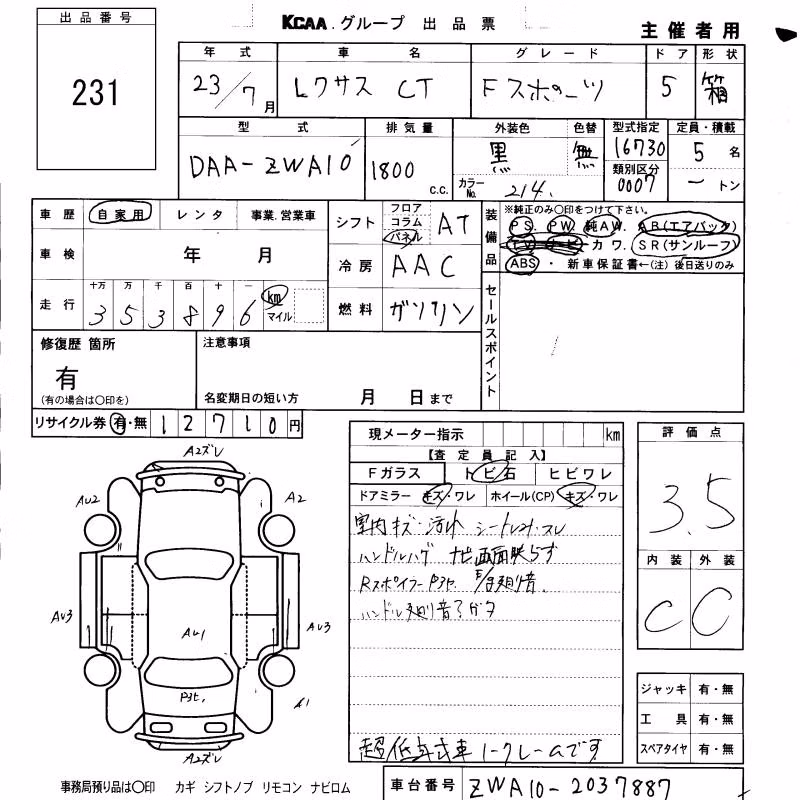 出品番号
231
KCAA.グループ 出品票
主催者用
年式 車名 グレード ドア 形状
23/7月 レクサス CT Fスポーツ 5 箱
型式 排気量 外装色 色替 型式指定 定員・積載
DAA-ZWA10 1800 c.c. 黒 無 16730 5名
カラーNo. 214. 類別区分 0007 ートン
車歴 自家用 レンタ 事業.営業車
シフト フロア コラム パネル AT
装備品 ※純正のみ○印をつけて下さい。
PS. PW 純AW. AB(エアバック)
TV ナビ カワ. SR(サンルーフ)
ABS・ 新車保証書←(注) 後日送りのみ
車検 年 月
冷房 AAC
走行 十万 万 千 百 十 一
3 5 3 8 9 6 km マイル
燃料 ガソリン
セールスポイント
修復歴 箇所
有
(有の場合は○印を)
注意事項
名変期日の短い方 月 日まで
リサイクル券 有・無 12710円
現メーター指示 km
評価点
3.5
【査定員記入】
Fガラス トビ石 ヒビワレ
ドアミラー キズ・ワレ ホイール(CP) キズ・ワレ
室内キズ・汚れ シートしみ・スレ
ハンドルハゲ ナビ画面映らず
RスポイラーP3セ.
ハンドル廻り音
内装 外装
C C
A2ズレ
AU2 A2
AU3 AU1 AU3
A1
A2ズレ
ジャッキ 有・無
工具 有・無
スペアタイヤ 有・無
超低年式車ノークレームです
事務局預り品は○印 カギ シフトノブ リモコン ナビロム
車台番号 ZWA10-2037887